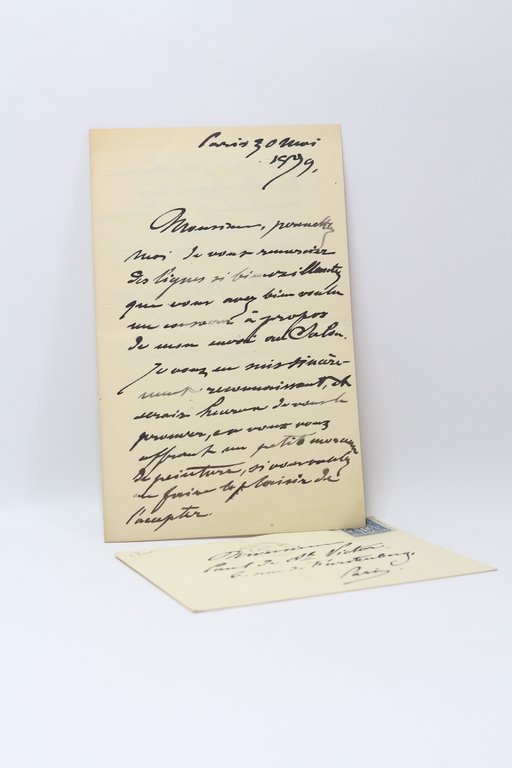 Paris 30 Mai
1879,
Monsieur, permettez
moi de vous remercier
des lignes si bienveillantes
que vous avez bien voulu
me consacrer à propos
de mon envoi au Salon.
Je vous en suis sincère-
ment reconnaissant, et
serais heureux de vous le
prouver, en vous
offrant un petit morceau
de peinture, si vous voulez
me faire le plaisir de
l'accepter.
Monsieur
Paul de St. Victor
rue de Furstenberg
Paris